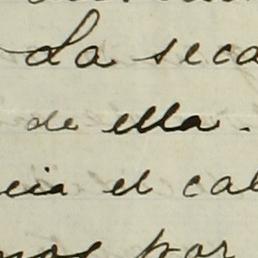 La seca
de ella.
cia el cal
mos por